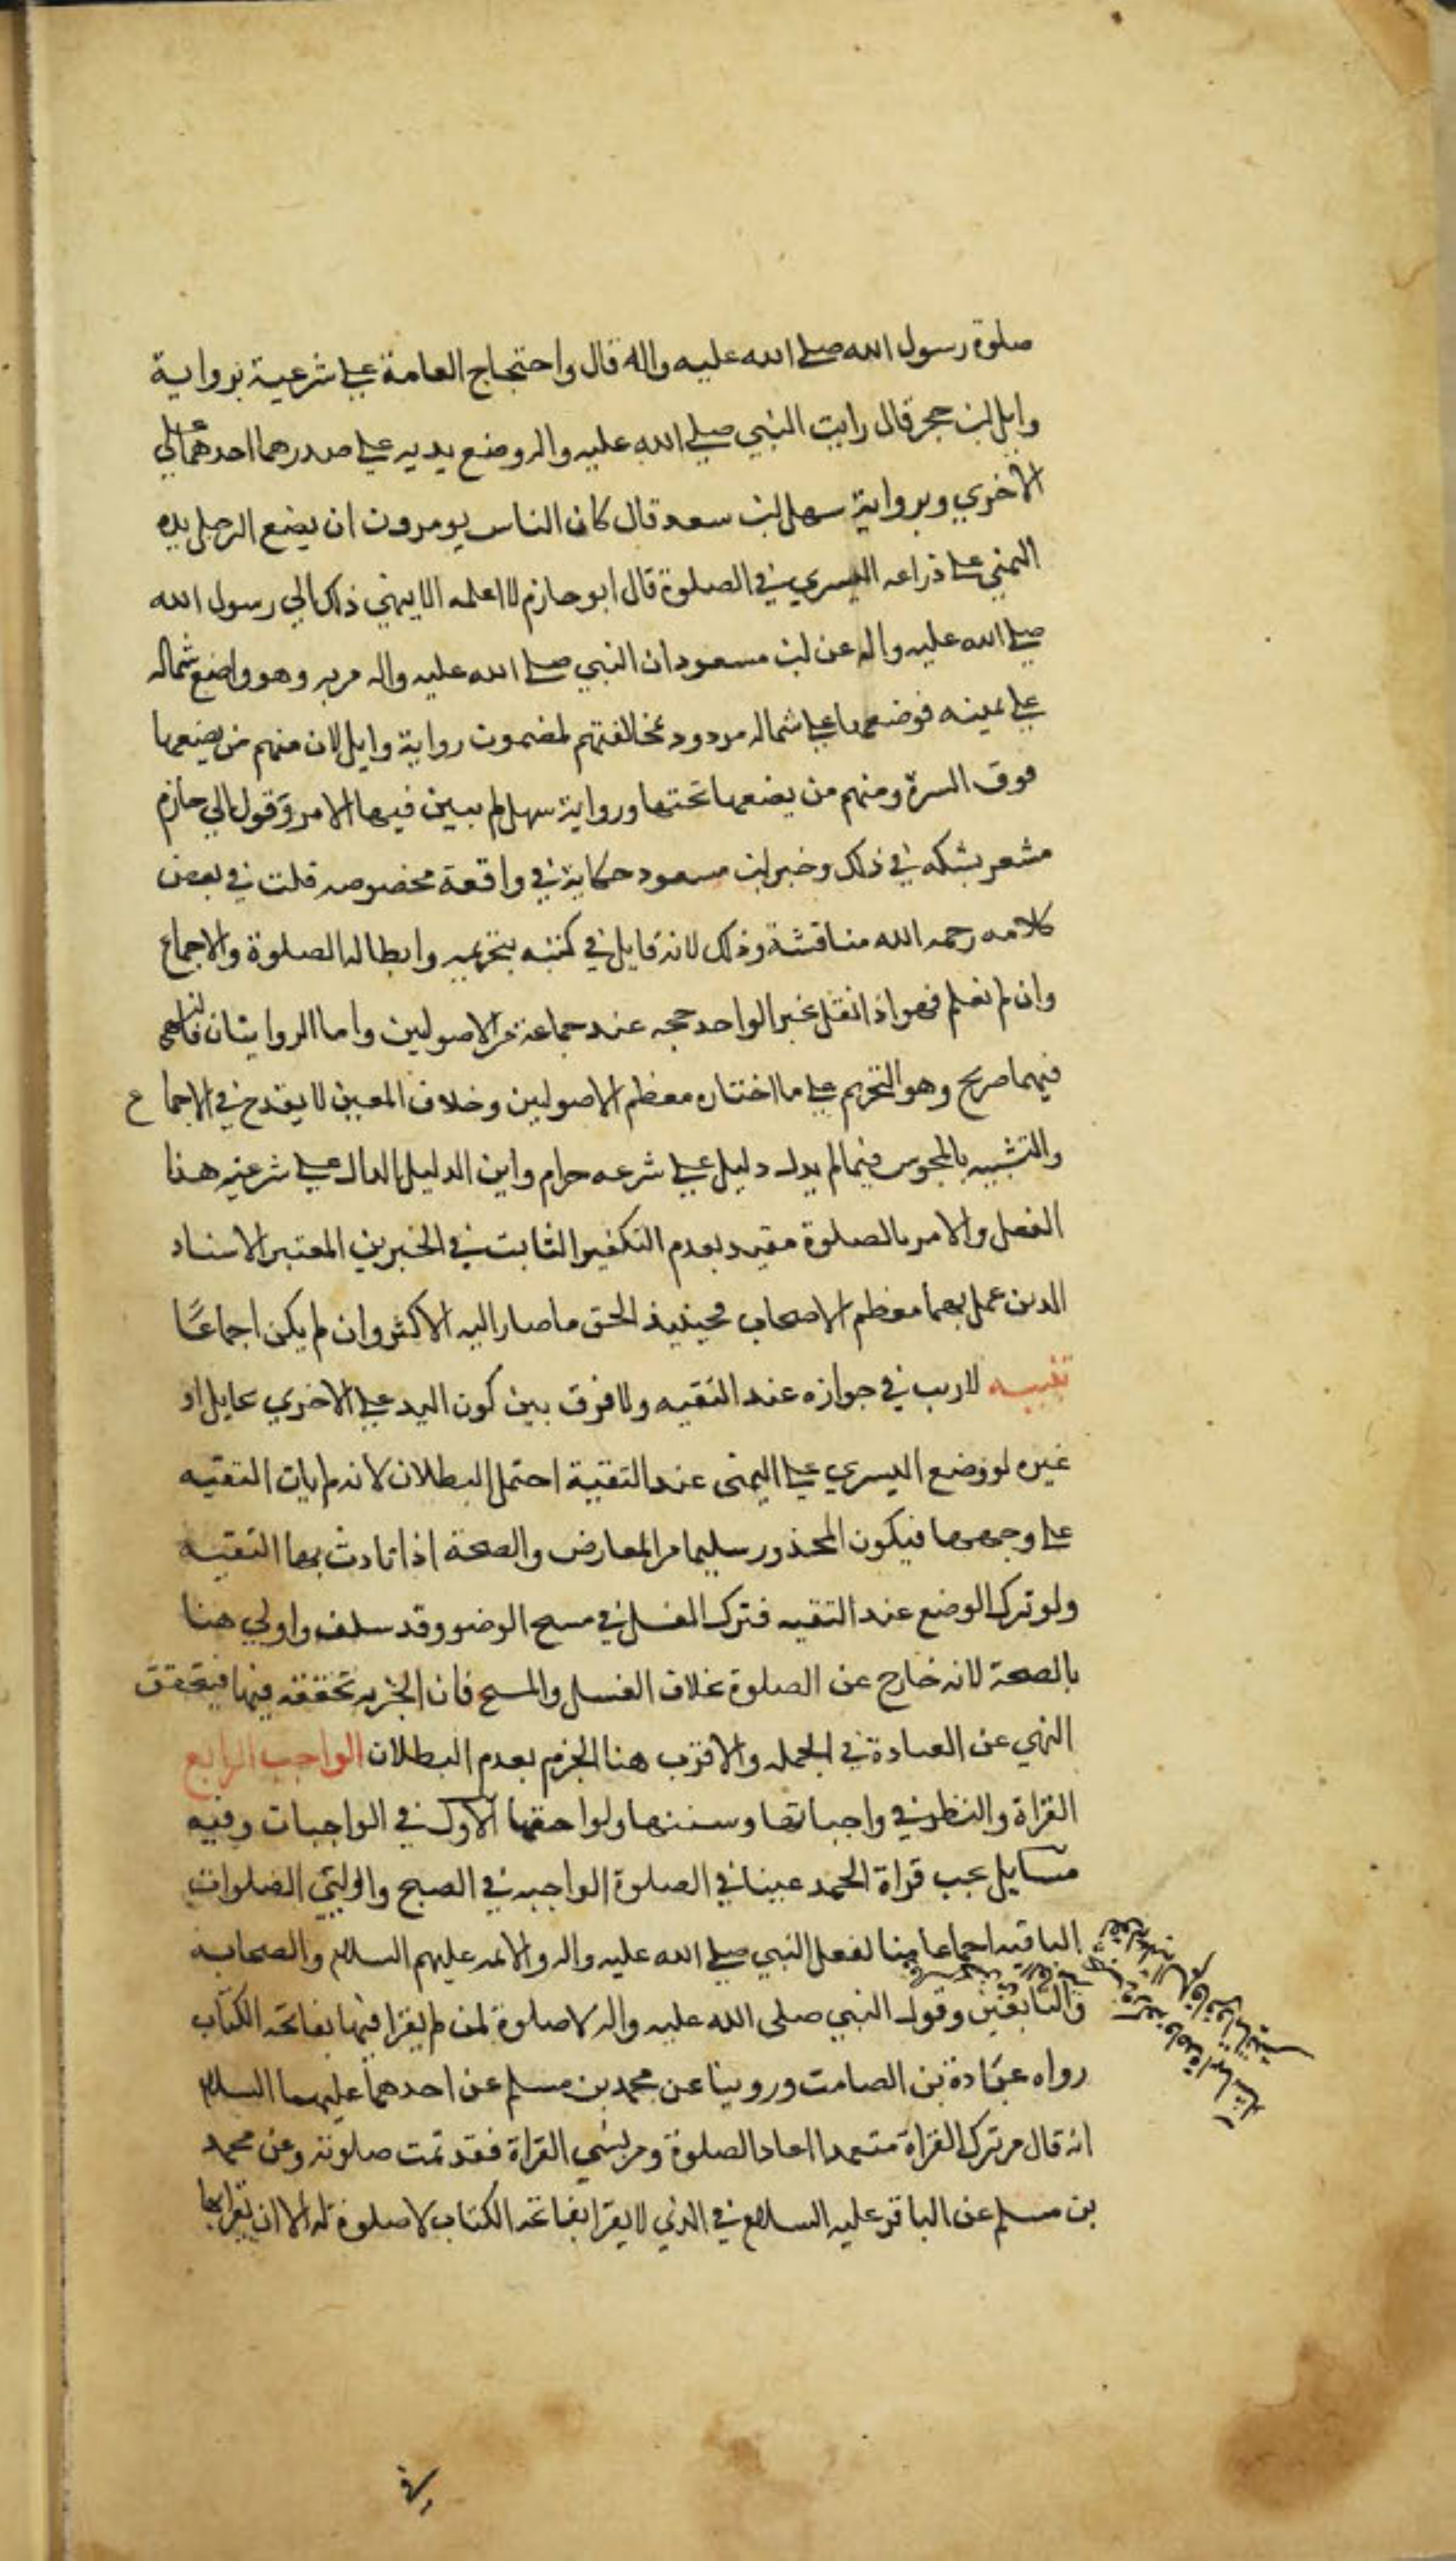 صلوة رسول الله صلى الله عليه واله قال واحتجاج العامة على شرعية برواية
وايل بن حجر قال رايت النبي صلى الله عليه واله وضع يديه على صدرهما احدهما على
الاخري وبرواية سهل بن سعد قال كان الناس يومرون ان يضع الرجل يده
اليمني على ذراعه اليسري في الصلوة قال ابو حازم لا اعلمه الا ينهي ذلك الي رسول الله
صلى الله عليه واله عن بن مسعود ان النبي صلى الله عليه واله مر به وهو واضع شماله
على يمينه فوضعها على شماله مردود بمخالفتهم لمضمون رواية وايل لان منهم من يضعها
فوق السرة ومنهم من يضعها تحتها ورواية سهل لم يبين فيها الامر وقول ابي حازم
مشعر بشكه في ذلك وخبر بن مسعود حكاية في واقعة مخصوصه قلت في بعض
كلامه رحمه الله مناقشة وذلك لانه قايل في كتبه بتحريمه وابطاله الصلوة والاجماع
وان لم نعلم فهو اذا نقل بخبر الواحد حجه عند جماعة من الاصولين واما الروايتان فالنهي
فيهما صريح وهو التحريم على ما اختاره معظم الاصولين وخلاف المعين لا يقدح في الاجماع
والتشبيه بالمجوس فيما لم يدل دليل على شرعه حرام واين الدليل الدال على شرعية هذا
الفعل والامر بالصلوة مقيد بعدم التكفير الثابت في الخبرين المعتبر الاسناد
الذين عمل بهما معظم الاصحاب فحينيذ الحق ما صار اليه الاكثر وان لم يكن اجماعًا
تنبيه لا ريب في جوازه عند التقيه ولا فرق بين كون اليد على الاخري بحايل او
غيره لو وضع اليسري على اليمنى عند التقية احتمل البطلان لانه لم يات التقيه
على وجهها فيكون المحذور سليما من المعارض والصحة اذا تادت بها التقيه
ولو ترك الوضع عند التقيه فترك الغسل في مسح الوضو وقد سلف واولي هنا
بالصحة لانه خارج عن الصلوة بخلاف الغسل والمسح فان الجزيه تحققه فيها فيتحقق
النهي عن العبادة في الجمله والاقرب هنا الجزم بعدم البطلان الواجب الرابع
القراة والنظر في واجباتها وسننها ولواحقها الاول في الواجبات وفيه
مسايل يجب قراة الحمد عينا في الصلوة الواجبه في الصبح واولتي الصلوات
الباقيه اجماعا منا لفعل النبي صلى الله عليه واله والايمه عليهم السلام والصحابه
والتابعين وقول النبي صلى الله عليه واله لا صلوة لمن لم يقرا فيها بفاتحه الكتاب
رواه عبادة بن الصامت وروينا عن محمد بن مسلم عن احدهما عليهما السلام
انه قال من ترك القراة متعمدا اعاد الصلوة ومن نسي القراة فقد تمت صلوته وعن محمد
بن مسلم عن الباقر عليه السلام في الذي لا يقرا بفاتحه الكتاب لا صلوة له الا ان يقرا بها